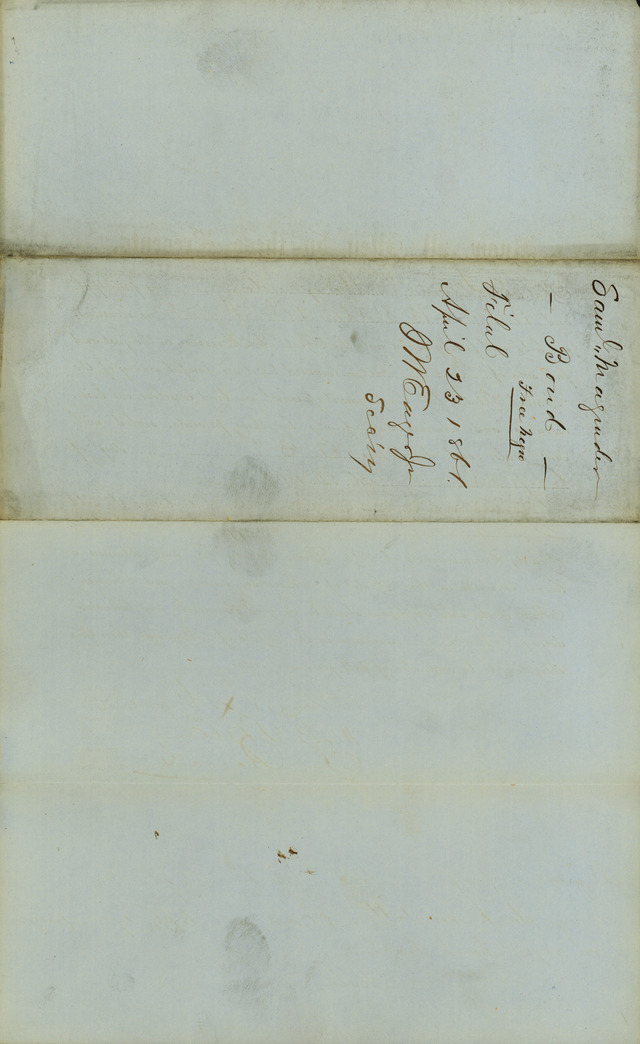 Saml. Magruder
— Bond —
Free Negro
Filed
April 23 1861.